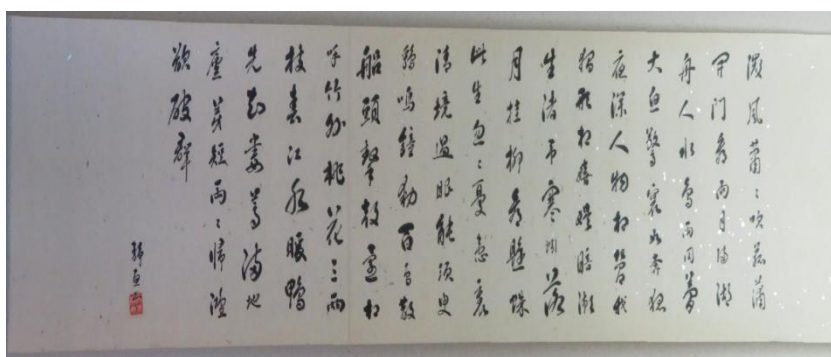 微風蕭〻吹菰蒲
開門看雨月滿湖
舟人水鳥兩同夢
大魚驚竄如奔狐
夜深人物相管我
獨形相嬉娛暗潮
生渚吊寒蚓落
月挂柳看懸蛛
此生忽〻憂患裏
清境過眼能須臾
雞鳴鐘動百鳥散
船頭擊鼓還相
呼竹外桃花三兩
枝春江水暖鴨
先知蔞蒿滿地
蘆芽短兩〻歸鴻
欲破群